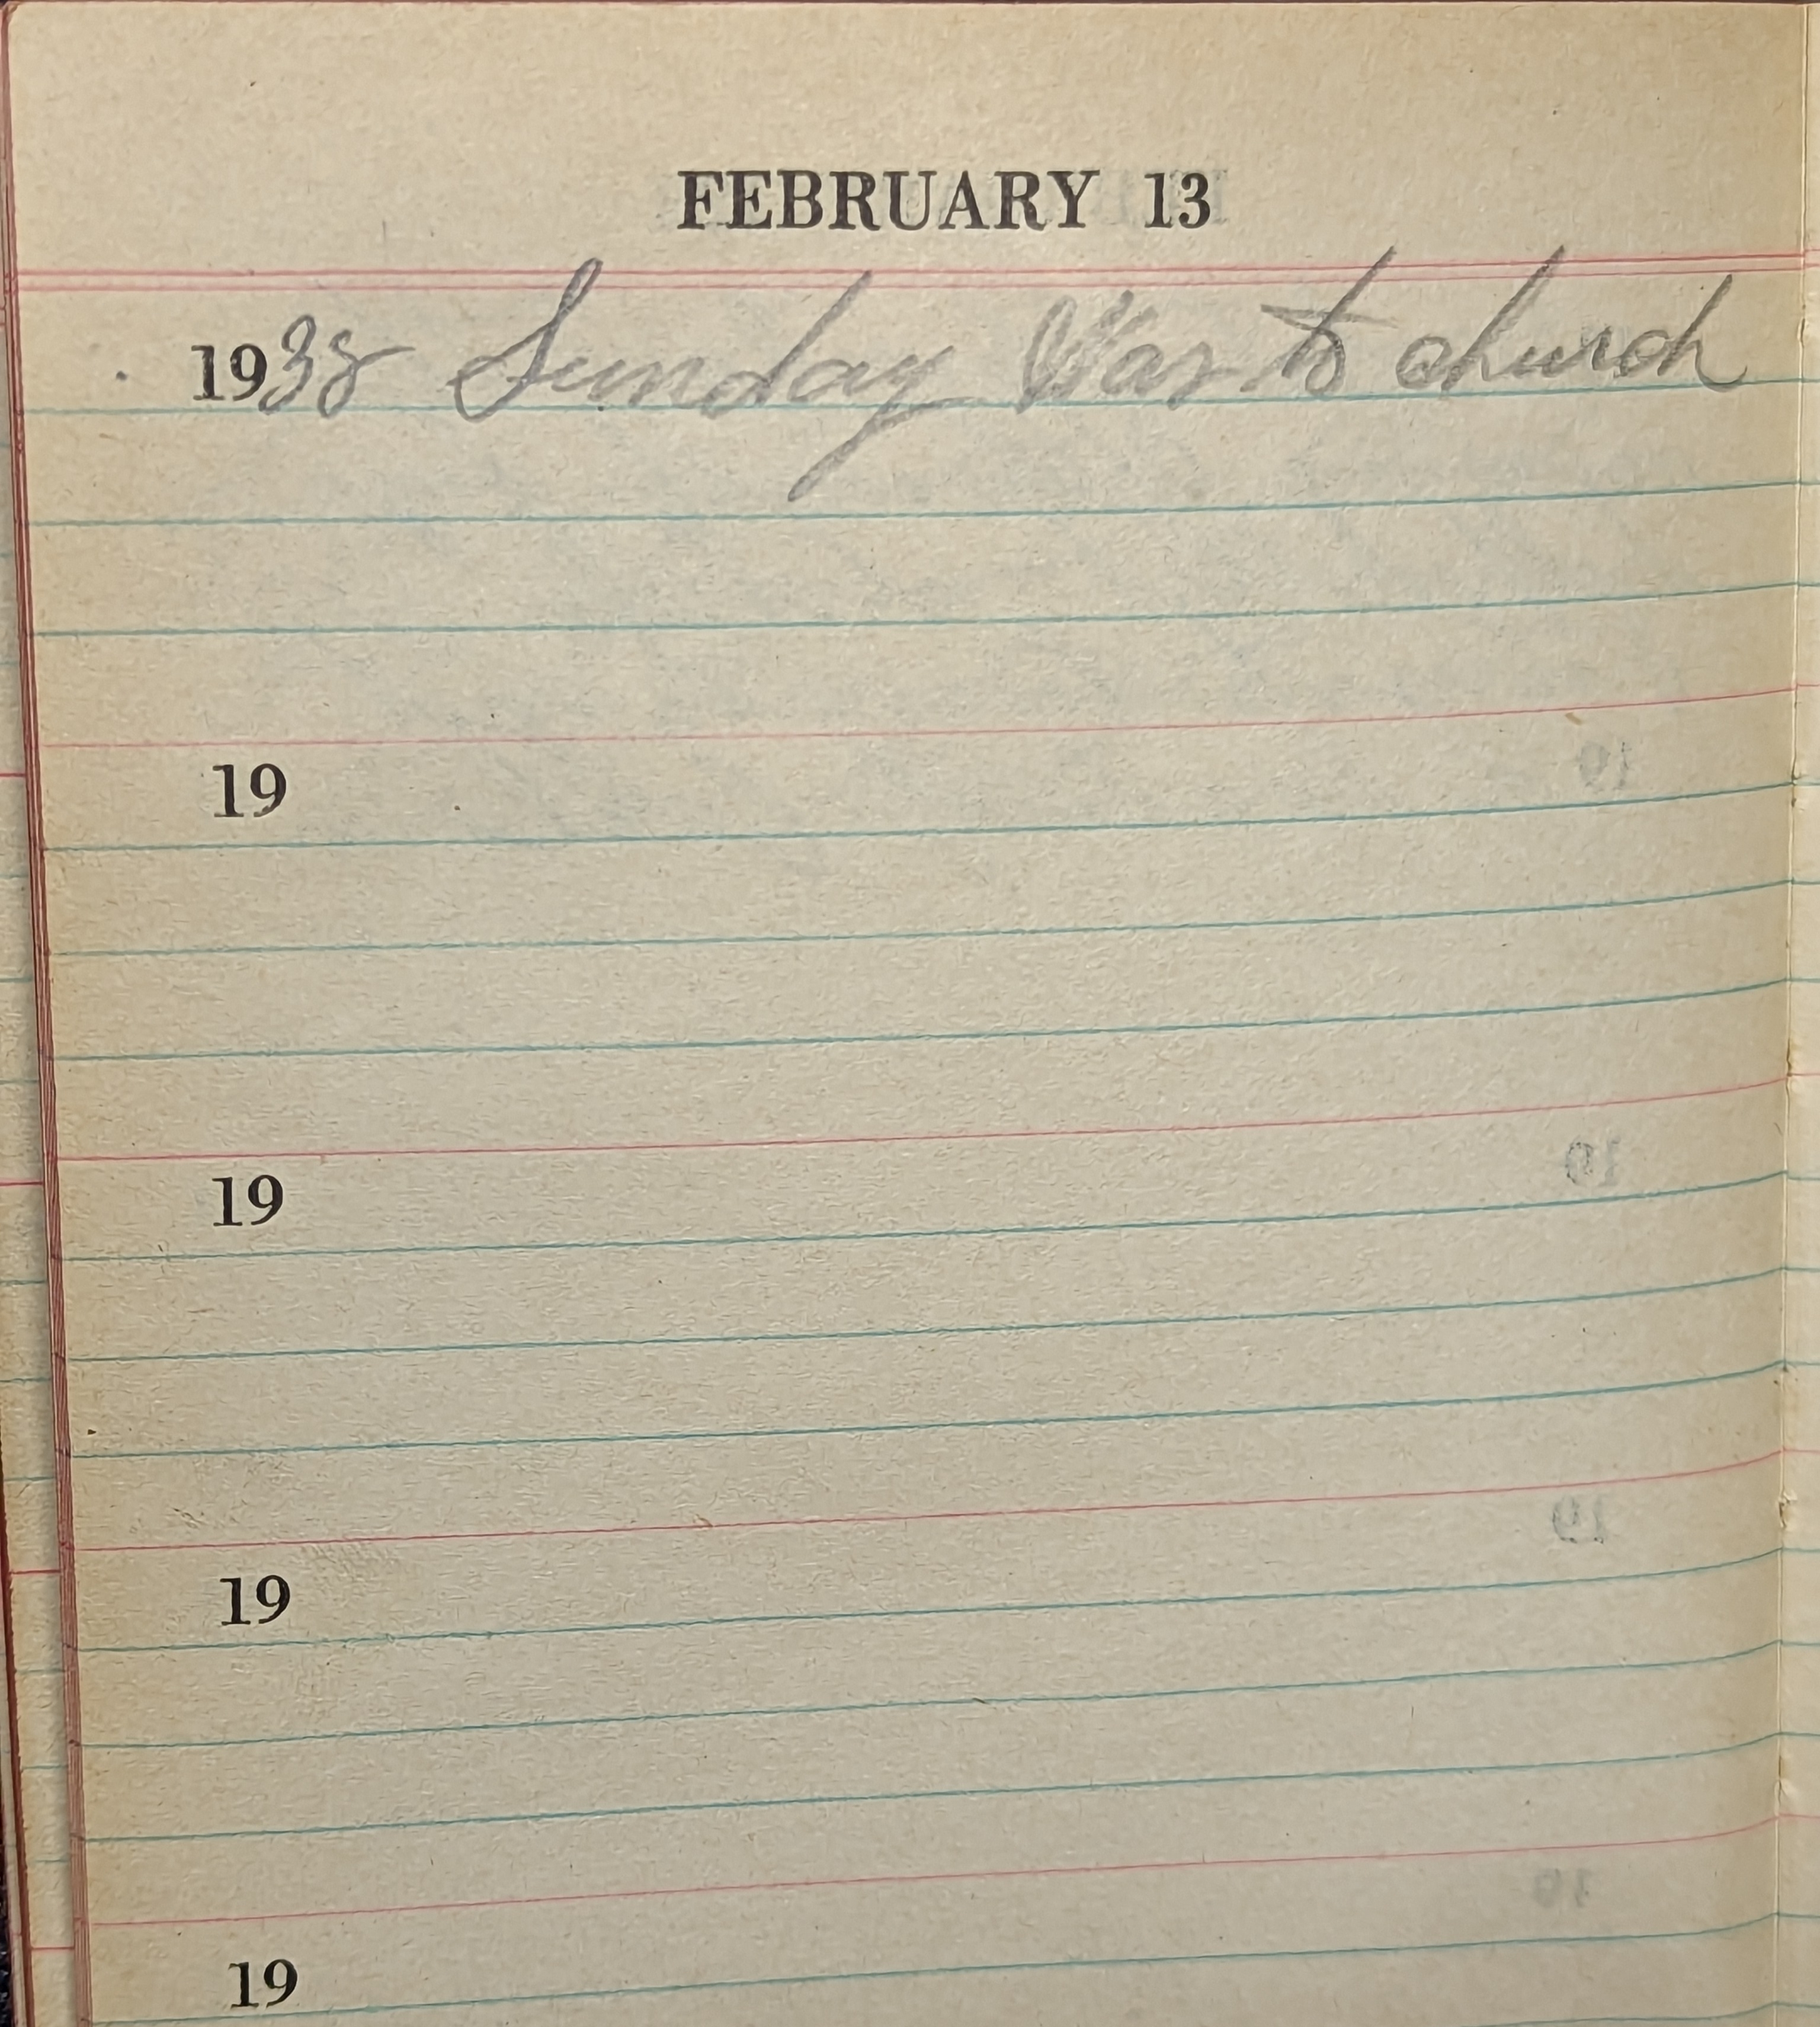 FEBRUARY 13
1938 Sunday Was to church
19
19
19
19